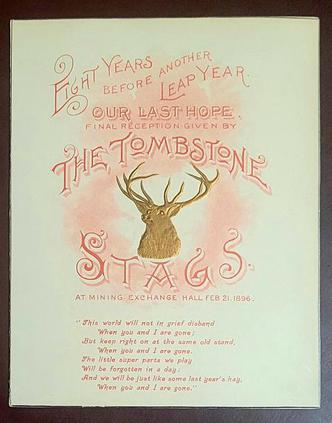 EIGHT YEARS
BEFORE ANOTHER
LEAP YEAR.
OUR LAST HOPE,
FINAL RECEPTION GIVEN BY
THE TOMBSTONE
STAGS.
AT MINING EXCHANGE HALL FEB 21, 1896.
"This world will not in grief disband
When you and I are gone;
But keep right on at the same old stand,
When you and I are gone.
The little super parts we play
Will be forgotten in a day;
And we will be just like some last year's hay,
When you and I are gone."